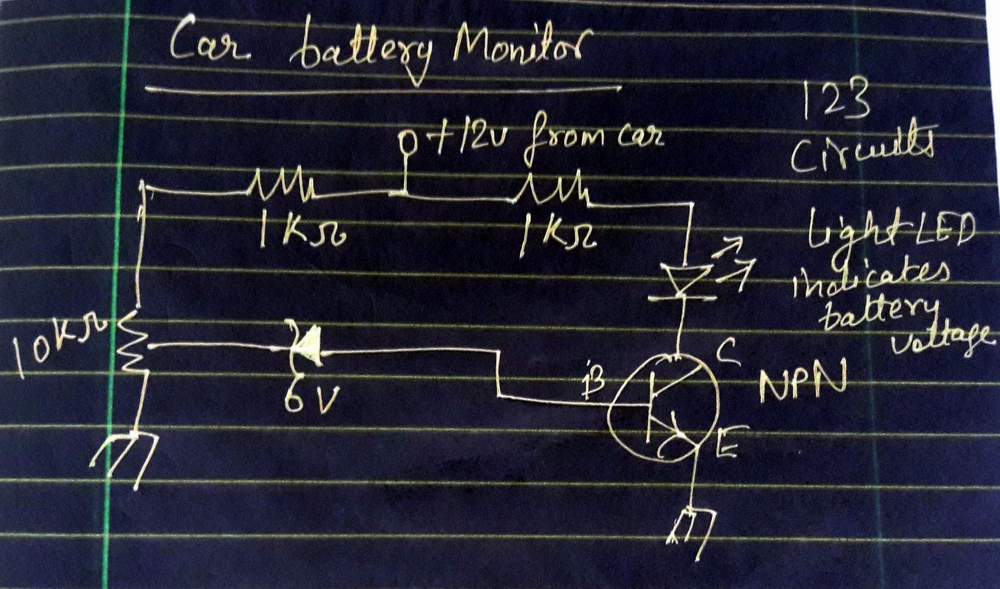 Car battery Monitor
+12v from car
123
Circuits
1KΩ
1KΩ
Light LED
indicates
battery
voltage
10KΩ
6V
B
C
NPN
E